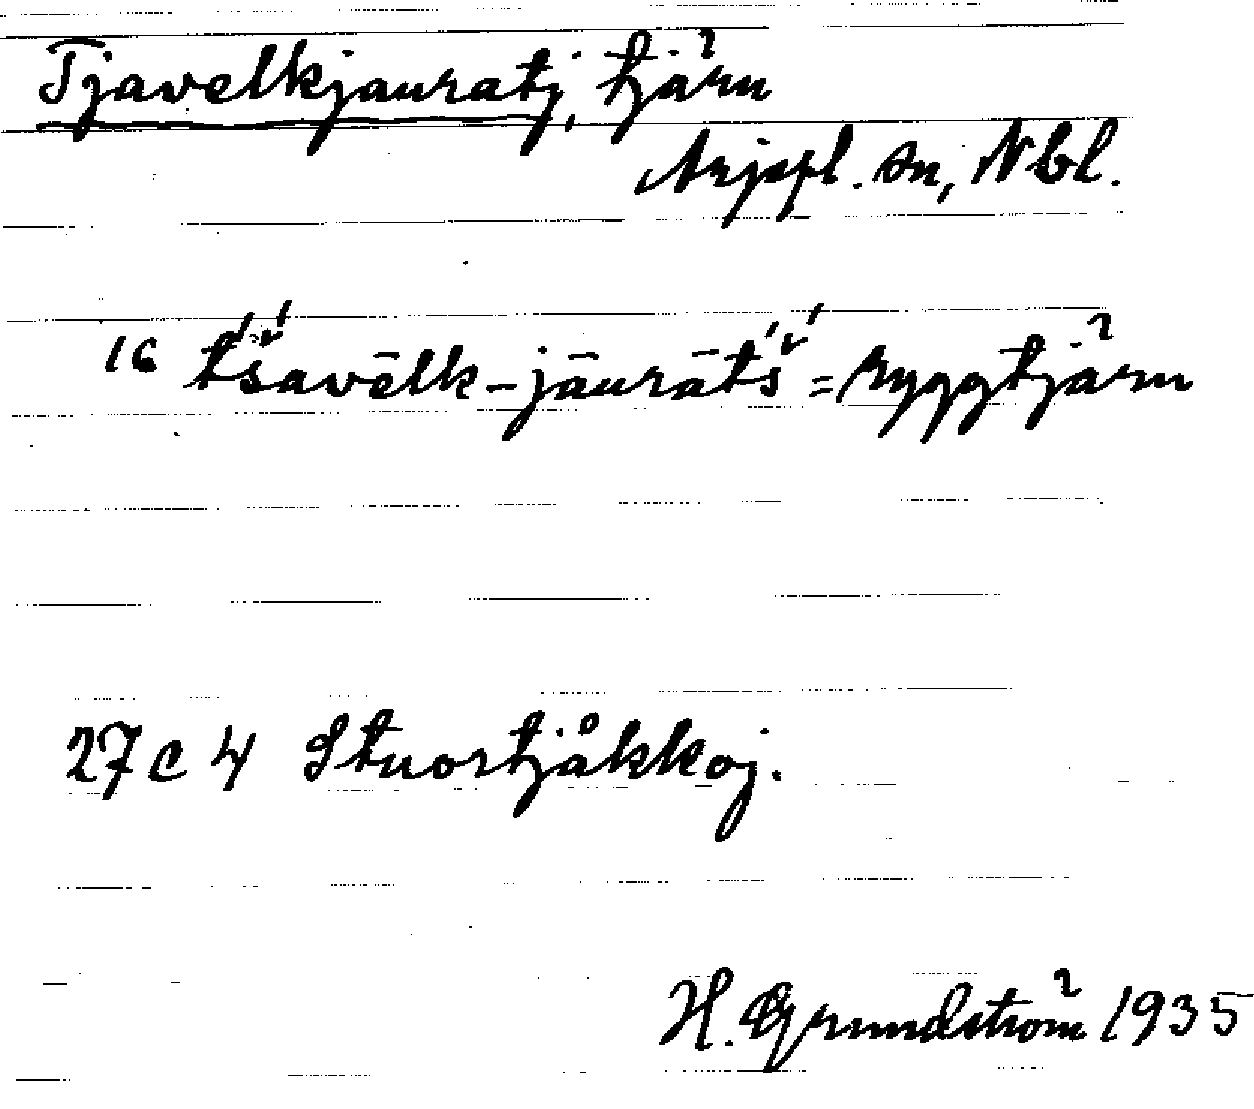 Tjavelkjauratj, tjärn
Arjepl. sn, Nbl.
16 t́š́avēlk-jāurāt́š́ = ryggtjärn
27 C 4 Stuortjåkkoj.
H. Grundström 1935